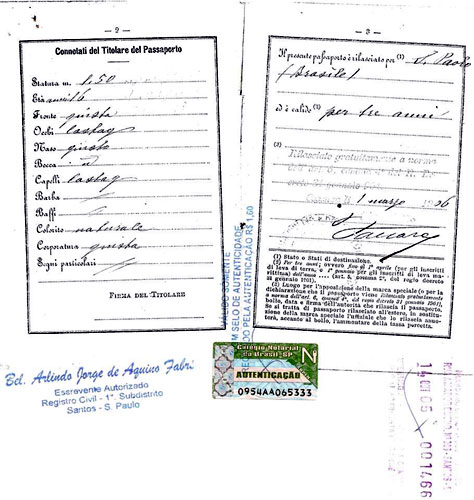 — 2 —
Connotati del Titolare del Passaporto
Statura m. 1.50
Età anni 16
Fronte giusta
Occhi castag
Naso giusto
Bocca "
Capelli castag
Barba
Baffi
Colorito naturale
Corporatura giusta
Segni particolari
FIRMA DEL TITOLARE
— 3 —
Il presente passaporto è rilasciato per (1) S. Paolo
(Brasile)
ed è valido (2) per tre anni
(3)
Rilasciato gratuitamente a norma
1 marzo
(1) Stato o Stati di destinazione.
(2) Per tre anni; ovvero fino al 1° aprile (per gli inscritti
di leva di terra, o 1° gennaio per gli inscritti di leva ma-
rittima) dell'anno (art. 5, comma 2°, del regio decreto
31 gennaio 1901).
(3) Luogo per l'apposizione della marca speciale (o per la
dichiarazione che il passaporto viene Rilasciato gratuitamente
a norma dell'art. 6, comma 4°, del regio decreto 31 gennaio 1901),
bollo, data e firma dell'autorità che rilascia il passaporto.
Se si tratta di passaporto rilasciato all'estero, in sostitu-
zione della marca speciale l'ufficiale che lo rilascia anno-
terà, accanto al bollo, l'ammontare della tassa percetta.
VÁLIDO SOMENTE
M SELO DE AUTENTICIDADE
DO PELA AUTENTICAÇÃO R$ 1,60
Bel. Arlindo Jorge de Aquino Fabri
Escrevente Autorizado
Registro Civil - 1º. Subdistrito
Santos - S. Paulo
Colégio Notarial
do Brasil - SP
AUTENTICAÇÃO
0954AA065333
001466